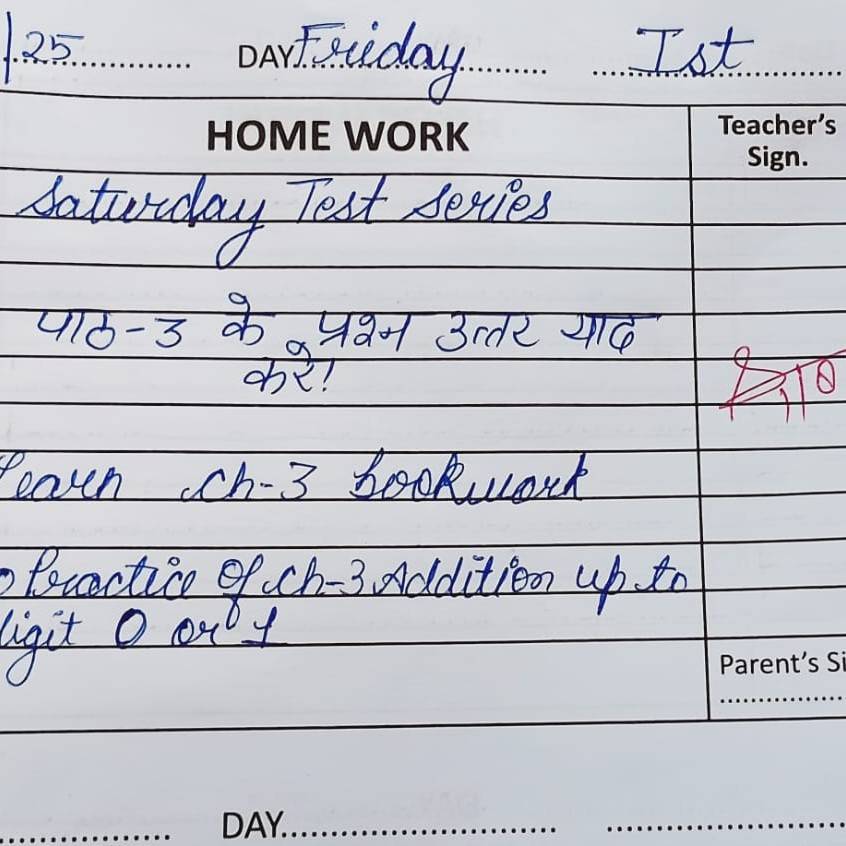 /25 DAY Friday Ist
HOME WORK Teacher's
Sign.
Saturday Test Series
पाठ-3 के प्रश्न उत्तर याद
करें!
Learn Ch-3 bookwork
Practice of Ch-3 Addition up to
digit 0 or 1
Parent's Si
DAY